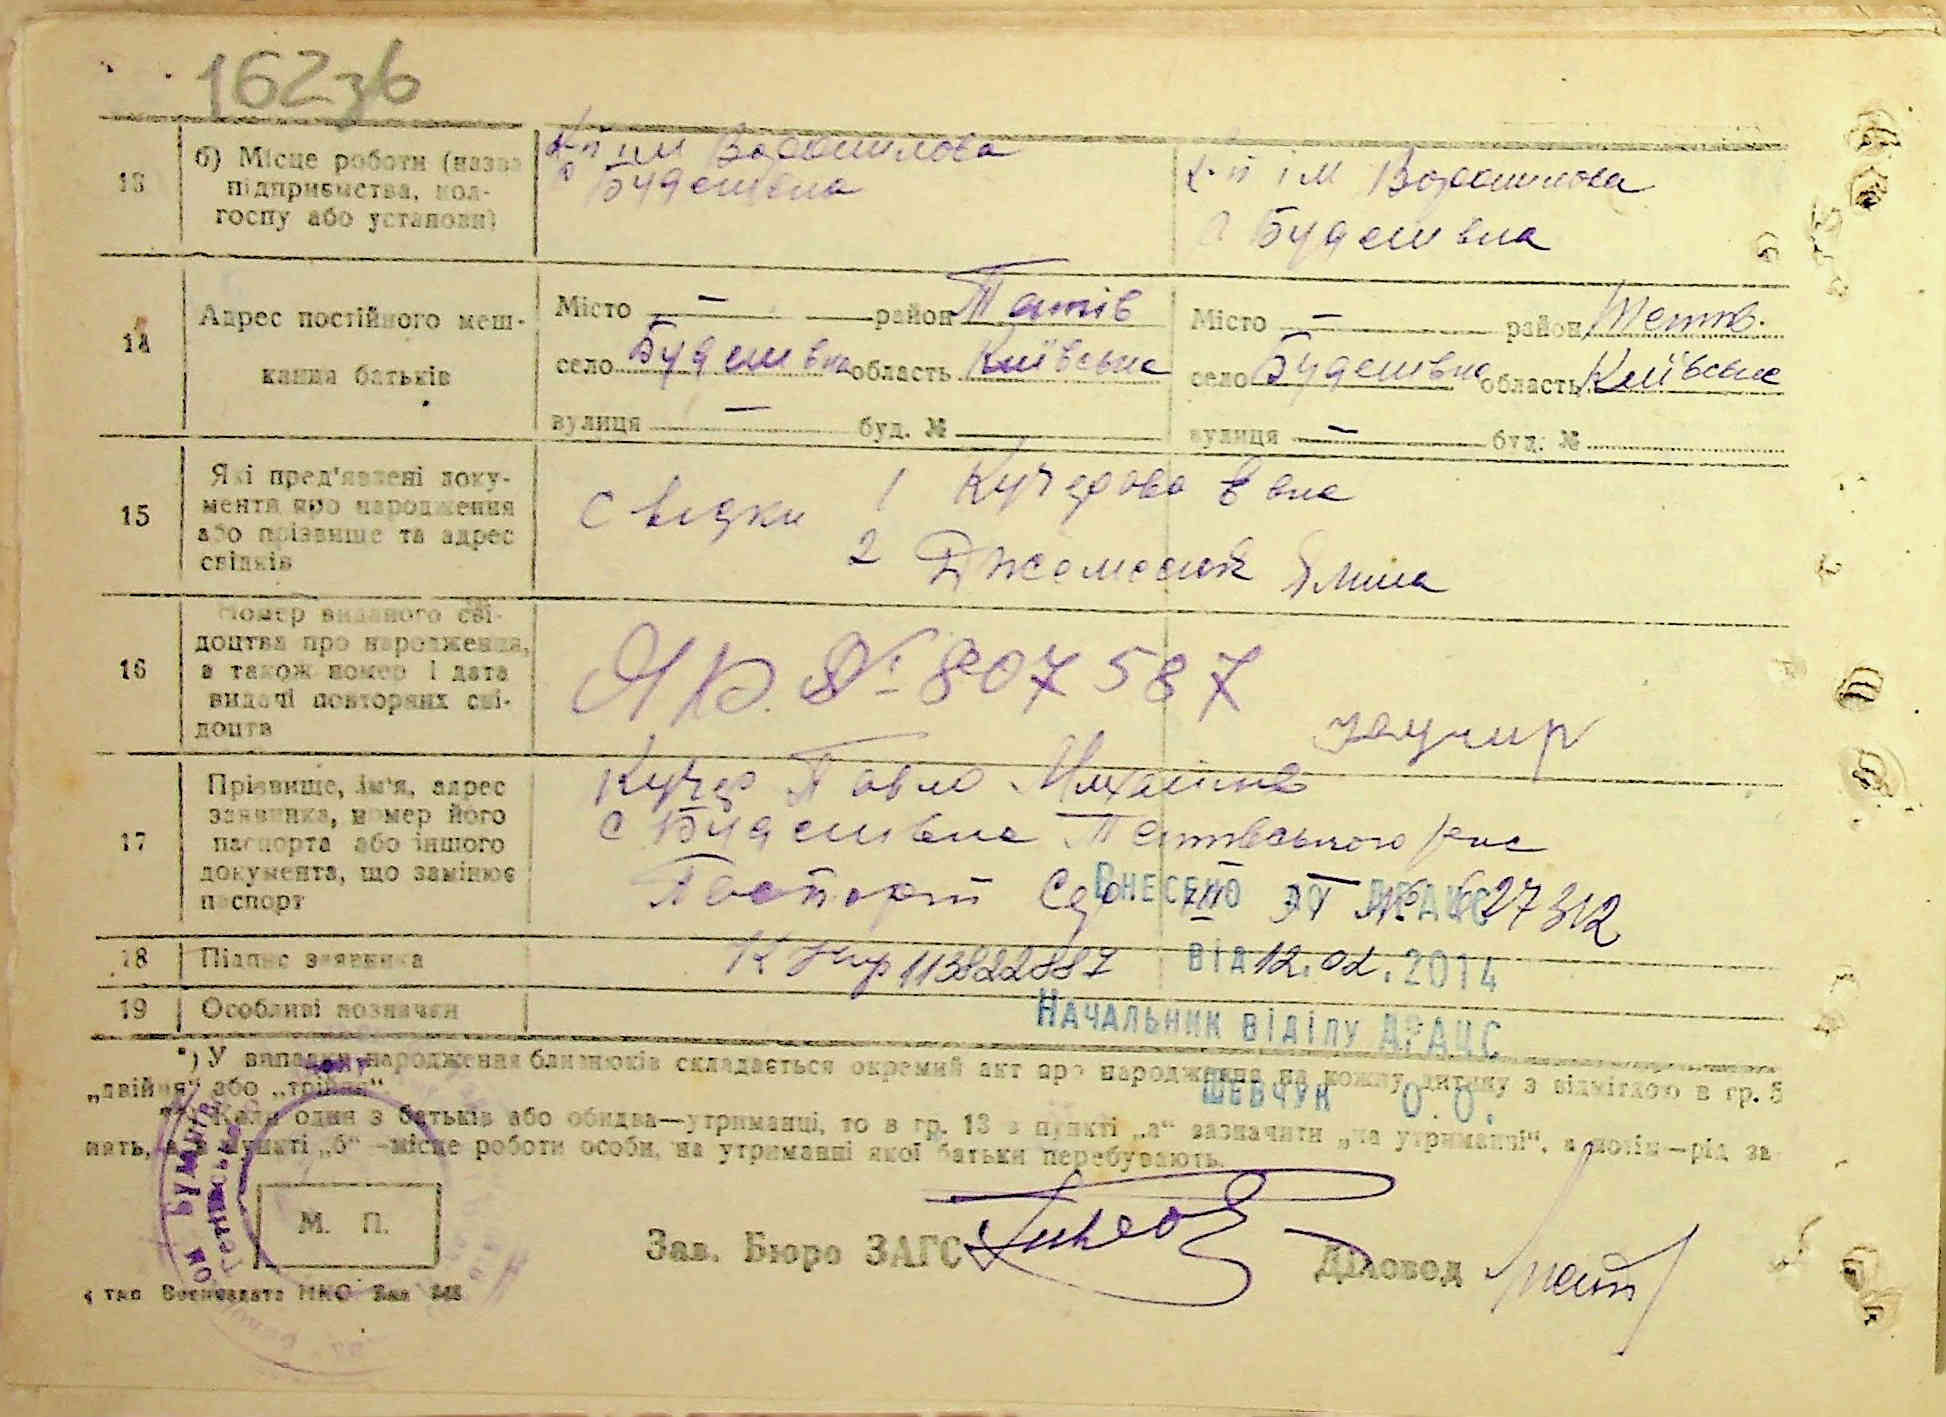 162зв
13
б) Місце роботи (назва підприємства, колгоспу або установи)
к-п ім Ворошилова
с Будешівна
к-п ім Ворошилова
с Будешівна
14
Адрес постійного мешкання батьків
Місто — район Тетіїв
село Будешівна область Київська
вулиця — буд. №
Місто — район Тетіїв.
село Будешівна область Київське
вулиця — буд. №
15
Які пред'явлені документи про народження або прізвище та адрес свідків
Свідки 1 Кучерова
2
16
Номер виданого свідоцтва про народження, а також номер і дата видачі повторних свідоцтв
ЯР. № 807587
17
Прізвище, ім'я, адрес заявника, номер його паспорта або іншого документа, що замінює паспорт
Кучер Павло
с Будешівна Тетіївського р-на
Паспорт Сер. III № 627312
Внесено до ДРАЦС
18
Підпис заявника
Кучер 113822887
від 12.02.2014
19
Особливі позначки
Начальник відділу ДРАЦС
Шевчук О.О.
*) У випадку народження близнюків складається окремий акт про народження на кожну дитину з відміткою в гр. 5
„двійня“ або „трійня“
**) Коли один з батьків або обидва—утриманці, то в гр. 13 в пункті „а“ зазначити „на утриманні“, а потім—рід за-
нять, а в пункті „б“ —місце роботи особи, на утриманні якої батьки перебувають.
М. П.
Зав. Бюро ЗАГС
Діловод